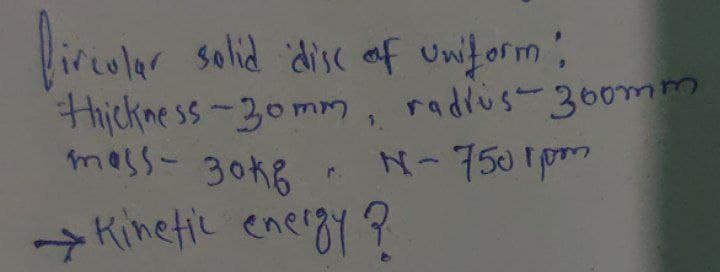 Circular solid disc of uniform;
thickness - 30mm, radius - 300mm
mass - 30kg, N - 750 rpm
→ Kinetic energy?